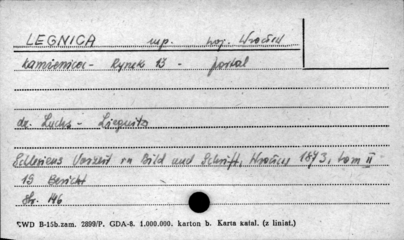 LEGNICA mp. woj. Wrocław
kamienica - Rynek 13 - portal
dr. Luchs - Liegnitz
Schlesiens Vorzeit in Bild und Schrift, Wrocław 1873, tom II
15 Bericht
Str. 146
ŁWD B-15b.zam. 2899/P. GDA-8. 1.000.000. karton b. Karta katal. (z liniat.)